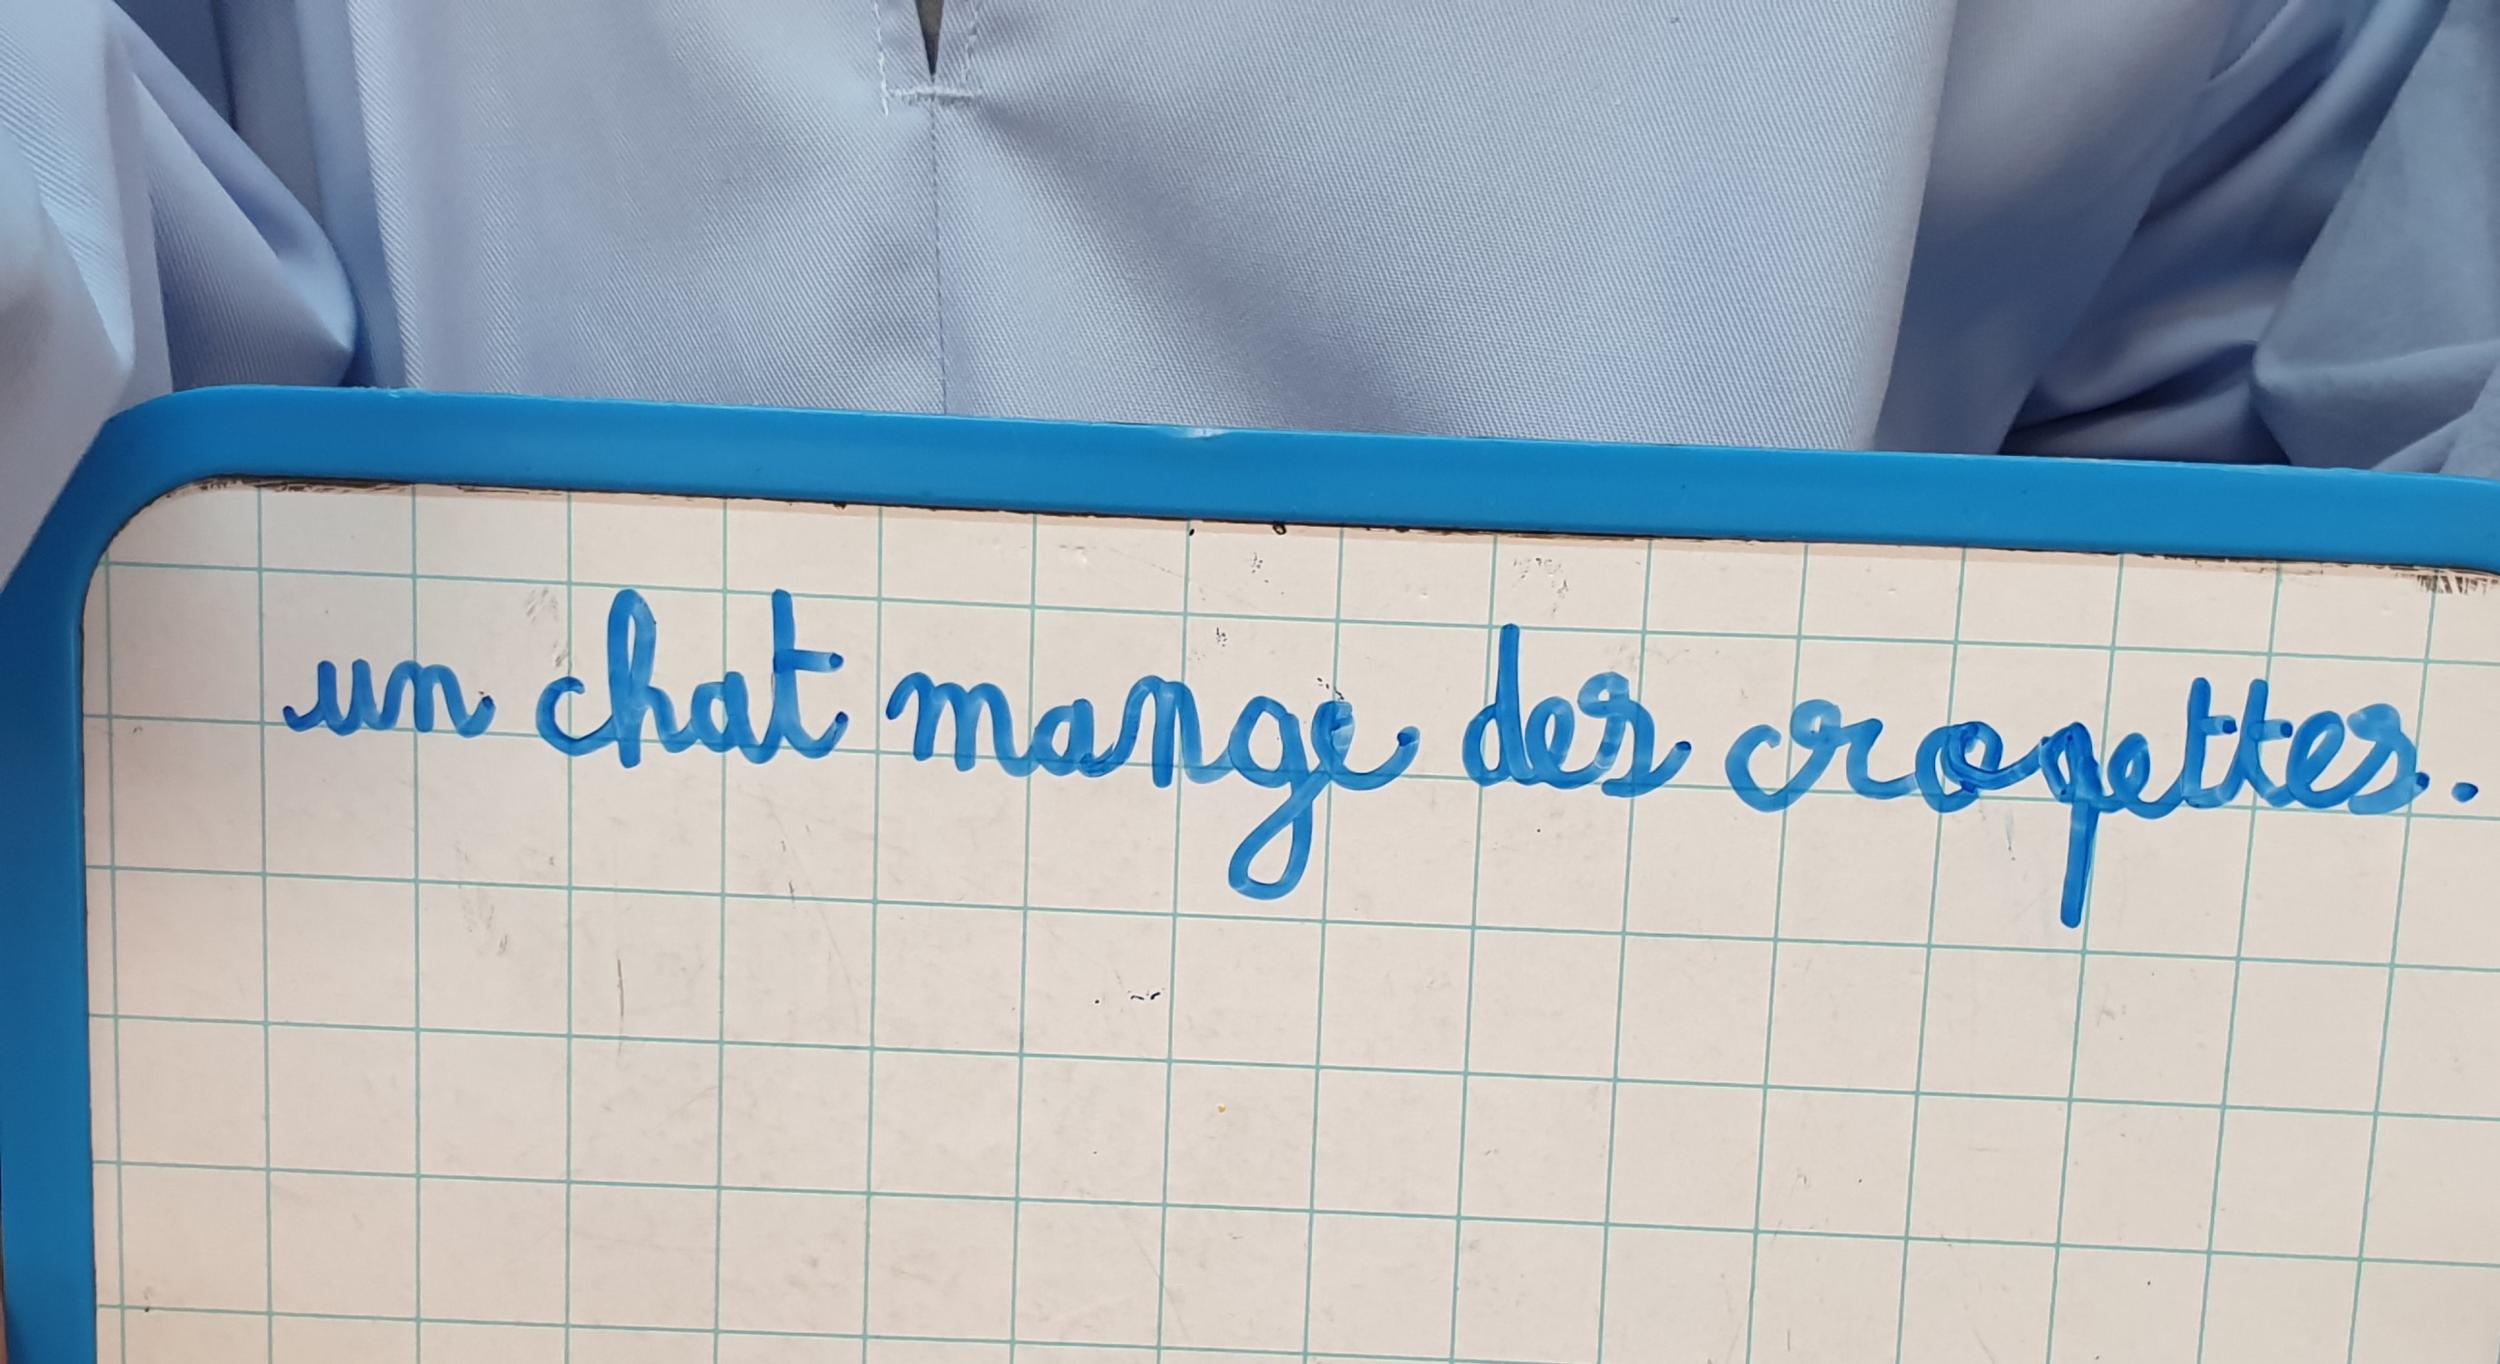 un chat mange des croqettes.